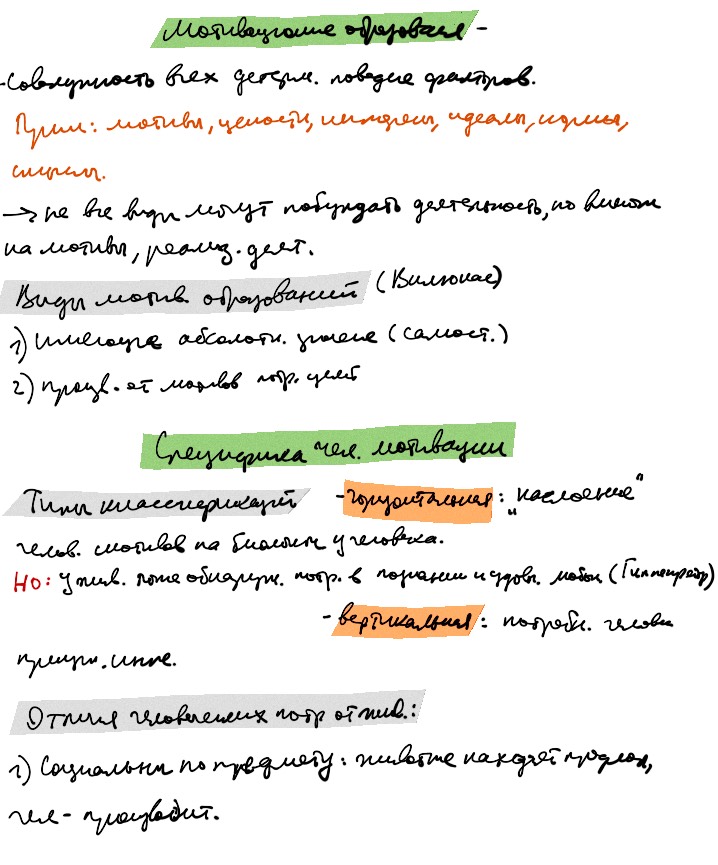 Мотивационные образования -
- Совокупность всех детерм. поведение факторов.
Прим: мотивы, ценности, интересы, идеалы, нормы,
смыслы.
→ не все виды могут побуждать деятельность, но влияют
на мотивы, реализ. деят.
Виды мотив. образований (Вилюнас)
1) имеющие абсолютн. значение (самост.)
2) произв. от мотивов потр. целей
Специфика чел. мотивации
Типы классификаций - горизонтальная: „наслоение"
челов. мотивов на биологич у человека.
НО: У жив. тоже обнаруж. потр. в познании и удовл. (Гиппенрейтер)
- вертикальная: потребн. человека
принцип. иные.
Отличия человеческих потр от жив.:
1) Социальны по предмету: животное находит предмет,
чел - производит.